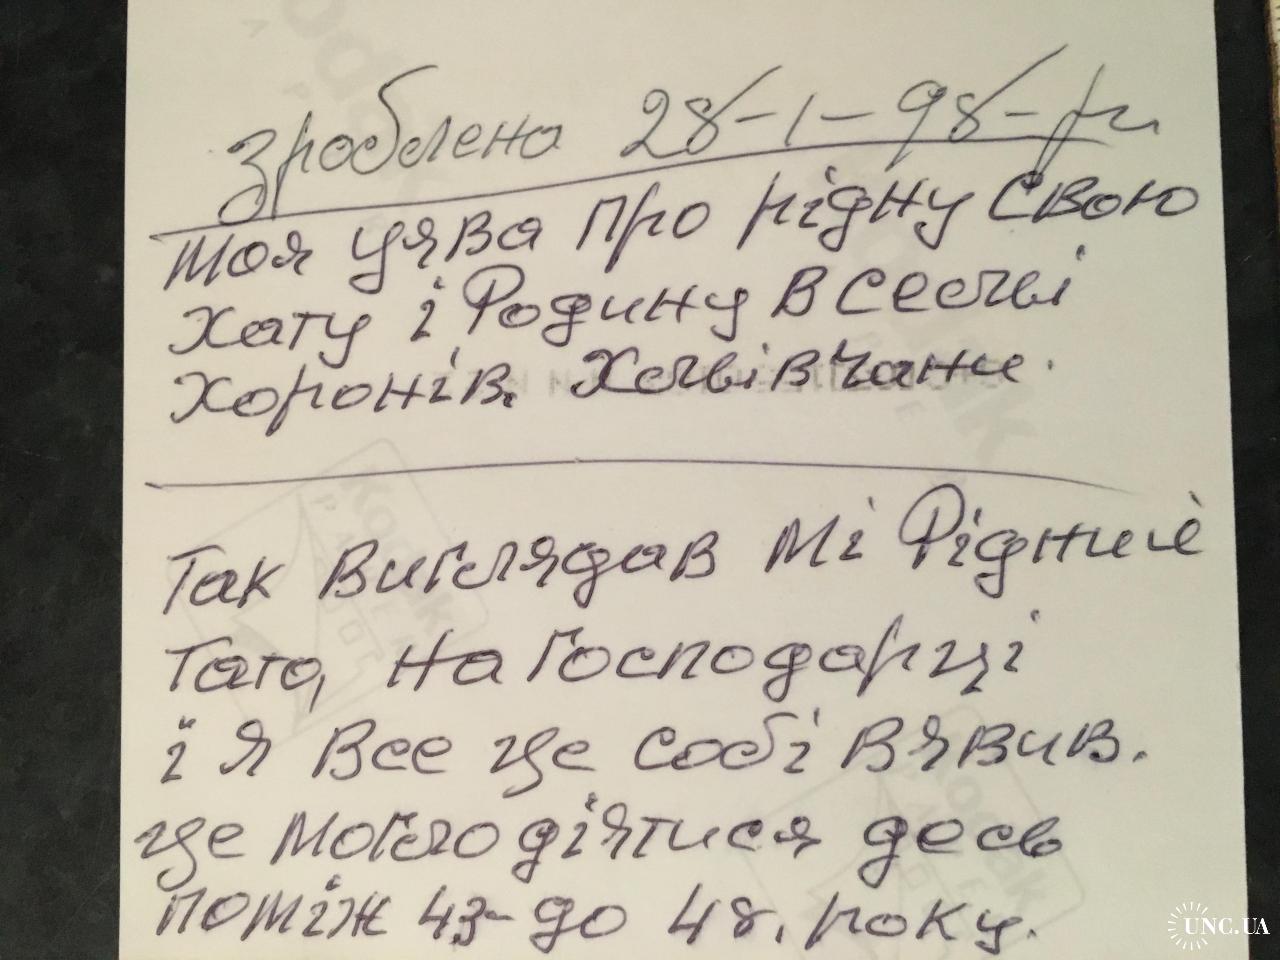 зроблено 28-1-98-ри
Моя уява про рідну свою
Хату і Родину в селі
Хоронів. Хлівчани.
Так виглядав мі Рідний
Тато, на Господарці
і я все це собі вявив.
це могло діятися десь
поміж 43- до 48. року.
UNC.UA